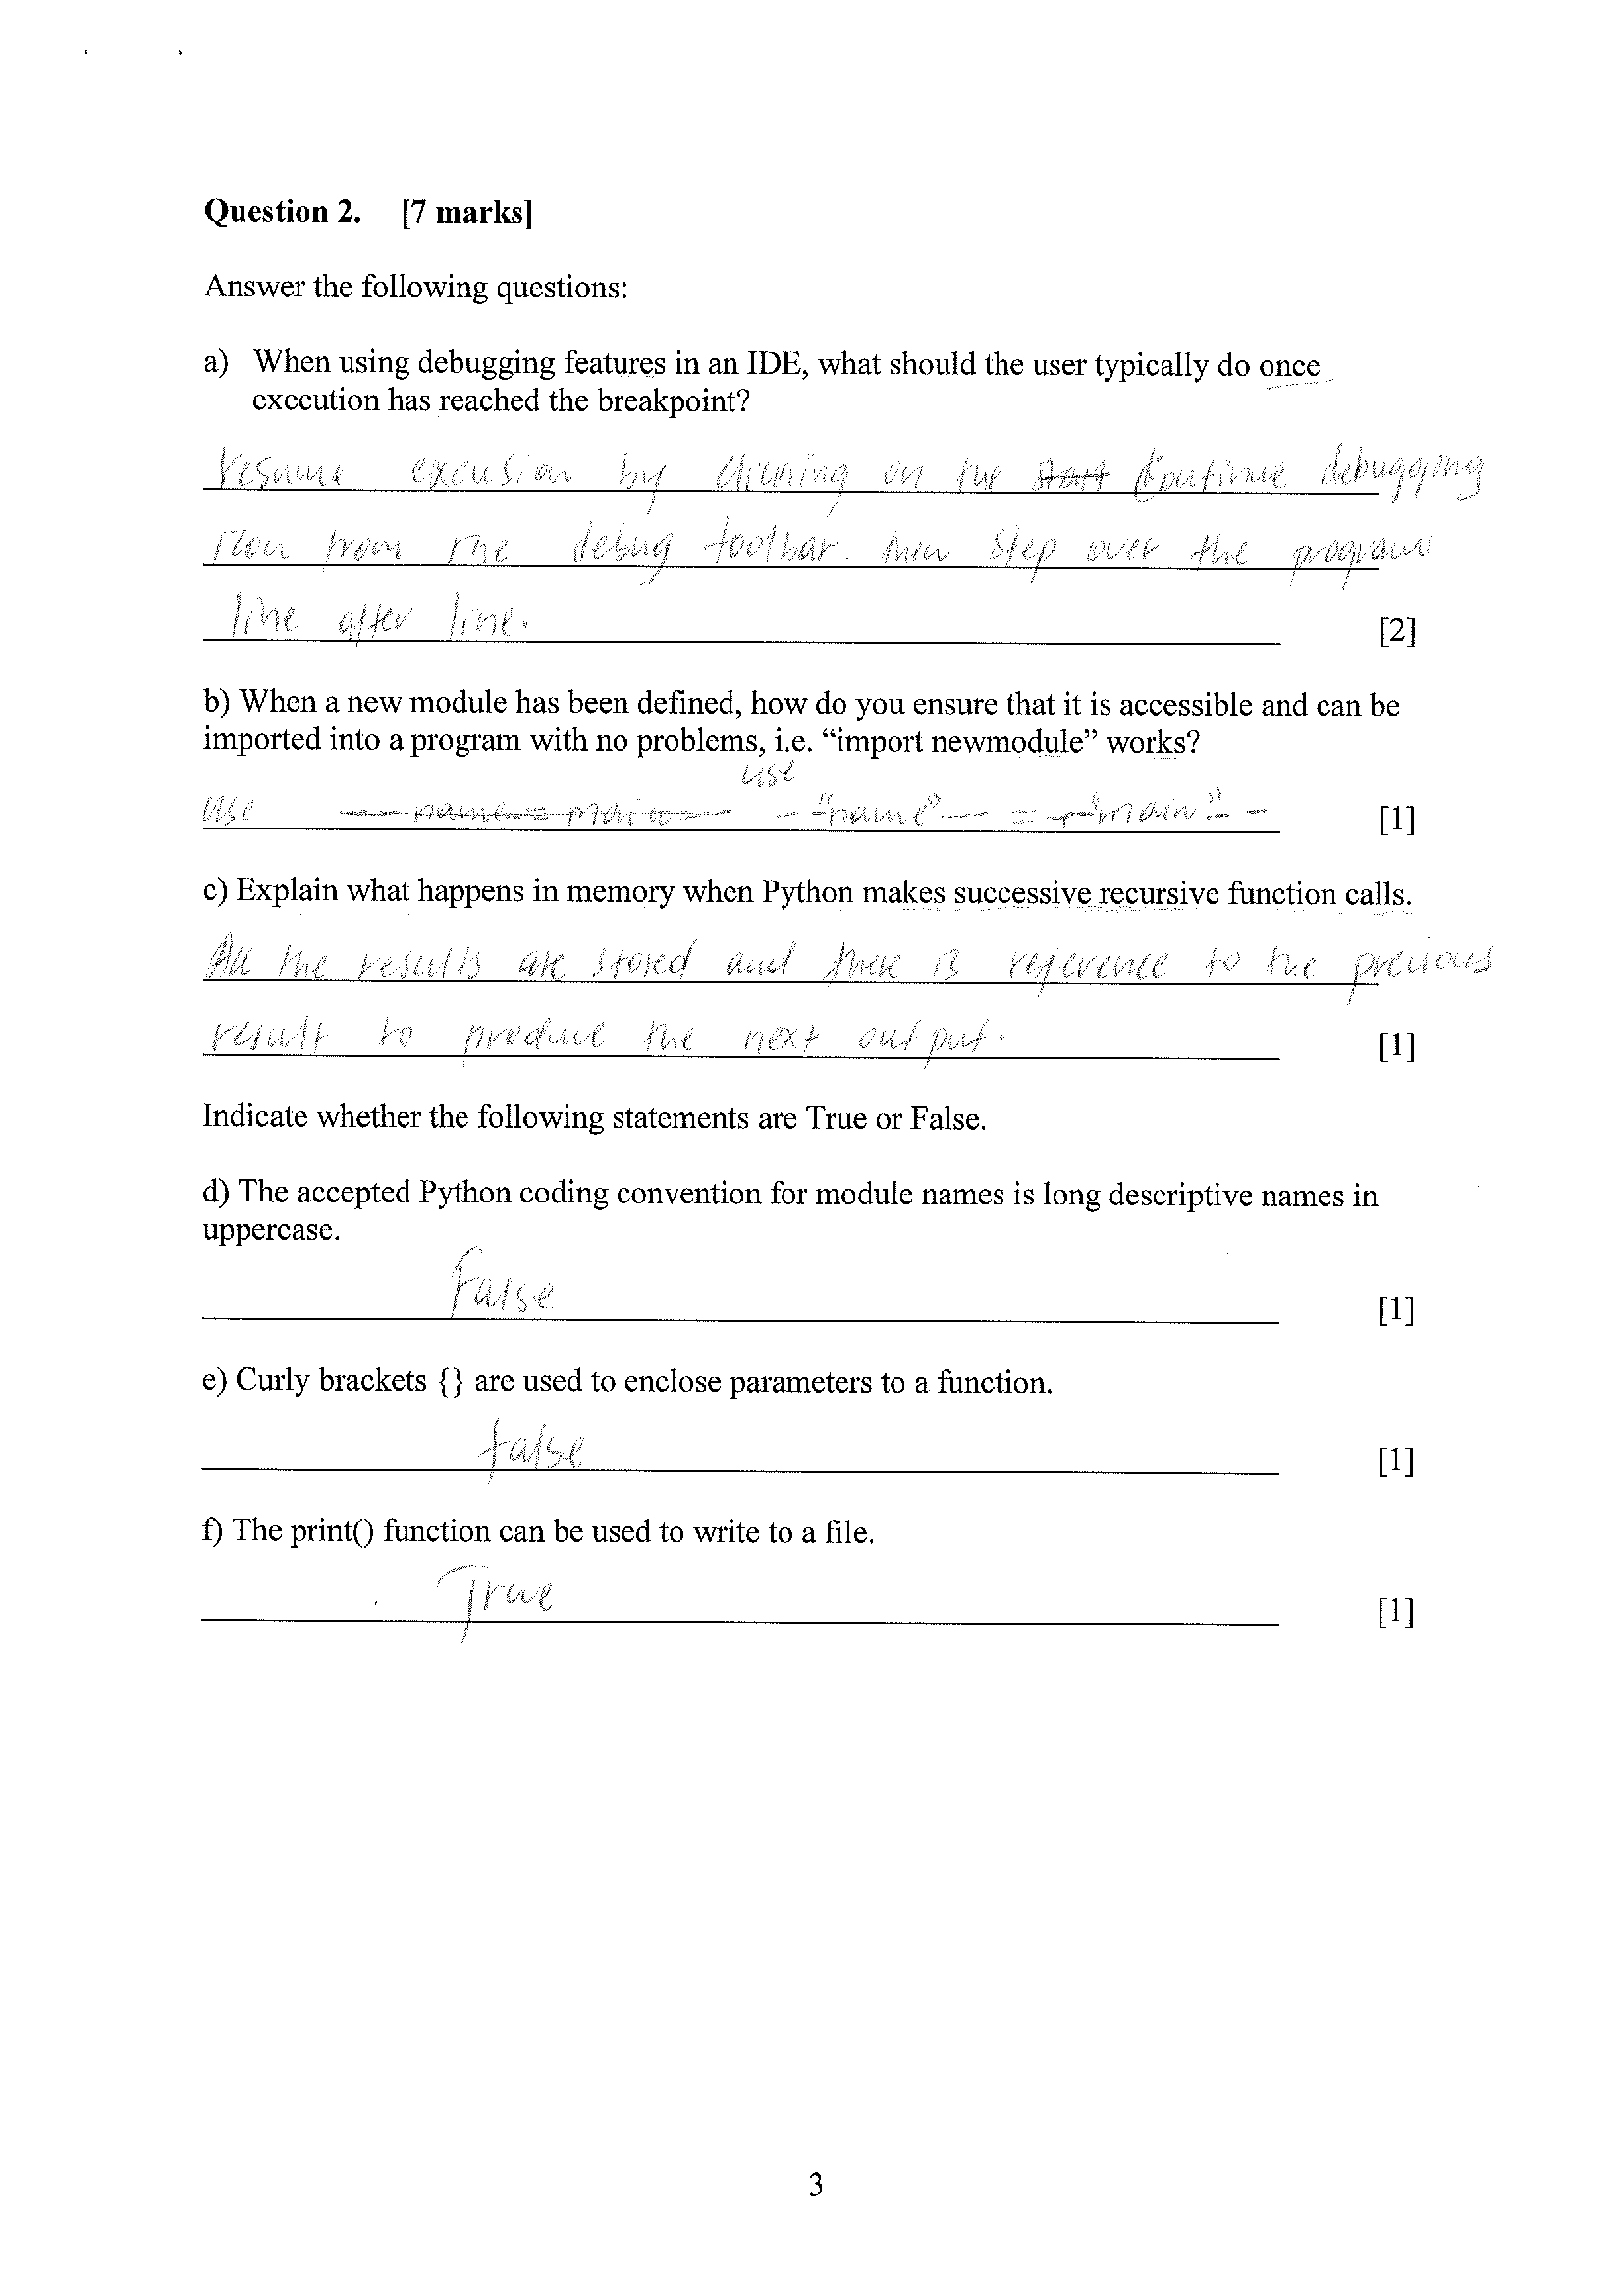 Question 2. [7 marks]
Answer the following questions:
a) When using debugging features in an IDE, what should the user typically do once
execution has reached the breakpoint?
resume excusion by clicking on the start Continue debugging
icon from the debug toolbar. then step over the program
line after line. [2]
b) When a new module has been defined, how do you ensure that it is accessible and can be
imported into a program with no problems, i.e. “import newmodule” works?
use
use -- name = main -- -- "name" -- == -- "main" -- [1]
c) Explain what happens in memory when Python makes successive recursive function calls.
All the results are stored and there is reference to the previous
result to produce the next output. [1]
Indicate whether the following statements are True or False.
d) The accepted Python coding convention for module names is long descriptive names in
uppercase.
False [1]
e) Curly brackets {} are used to enclose parameters to a function.
false [1]
f) The print() function can be used to write to a file.
True [1]
3